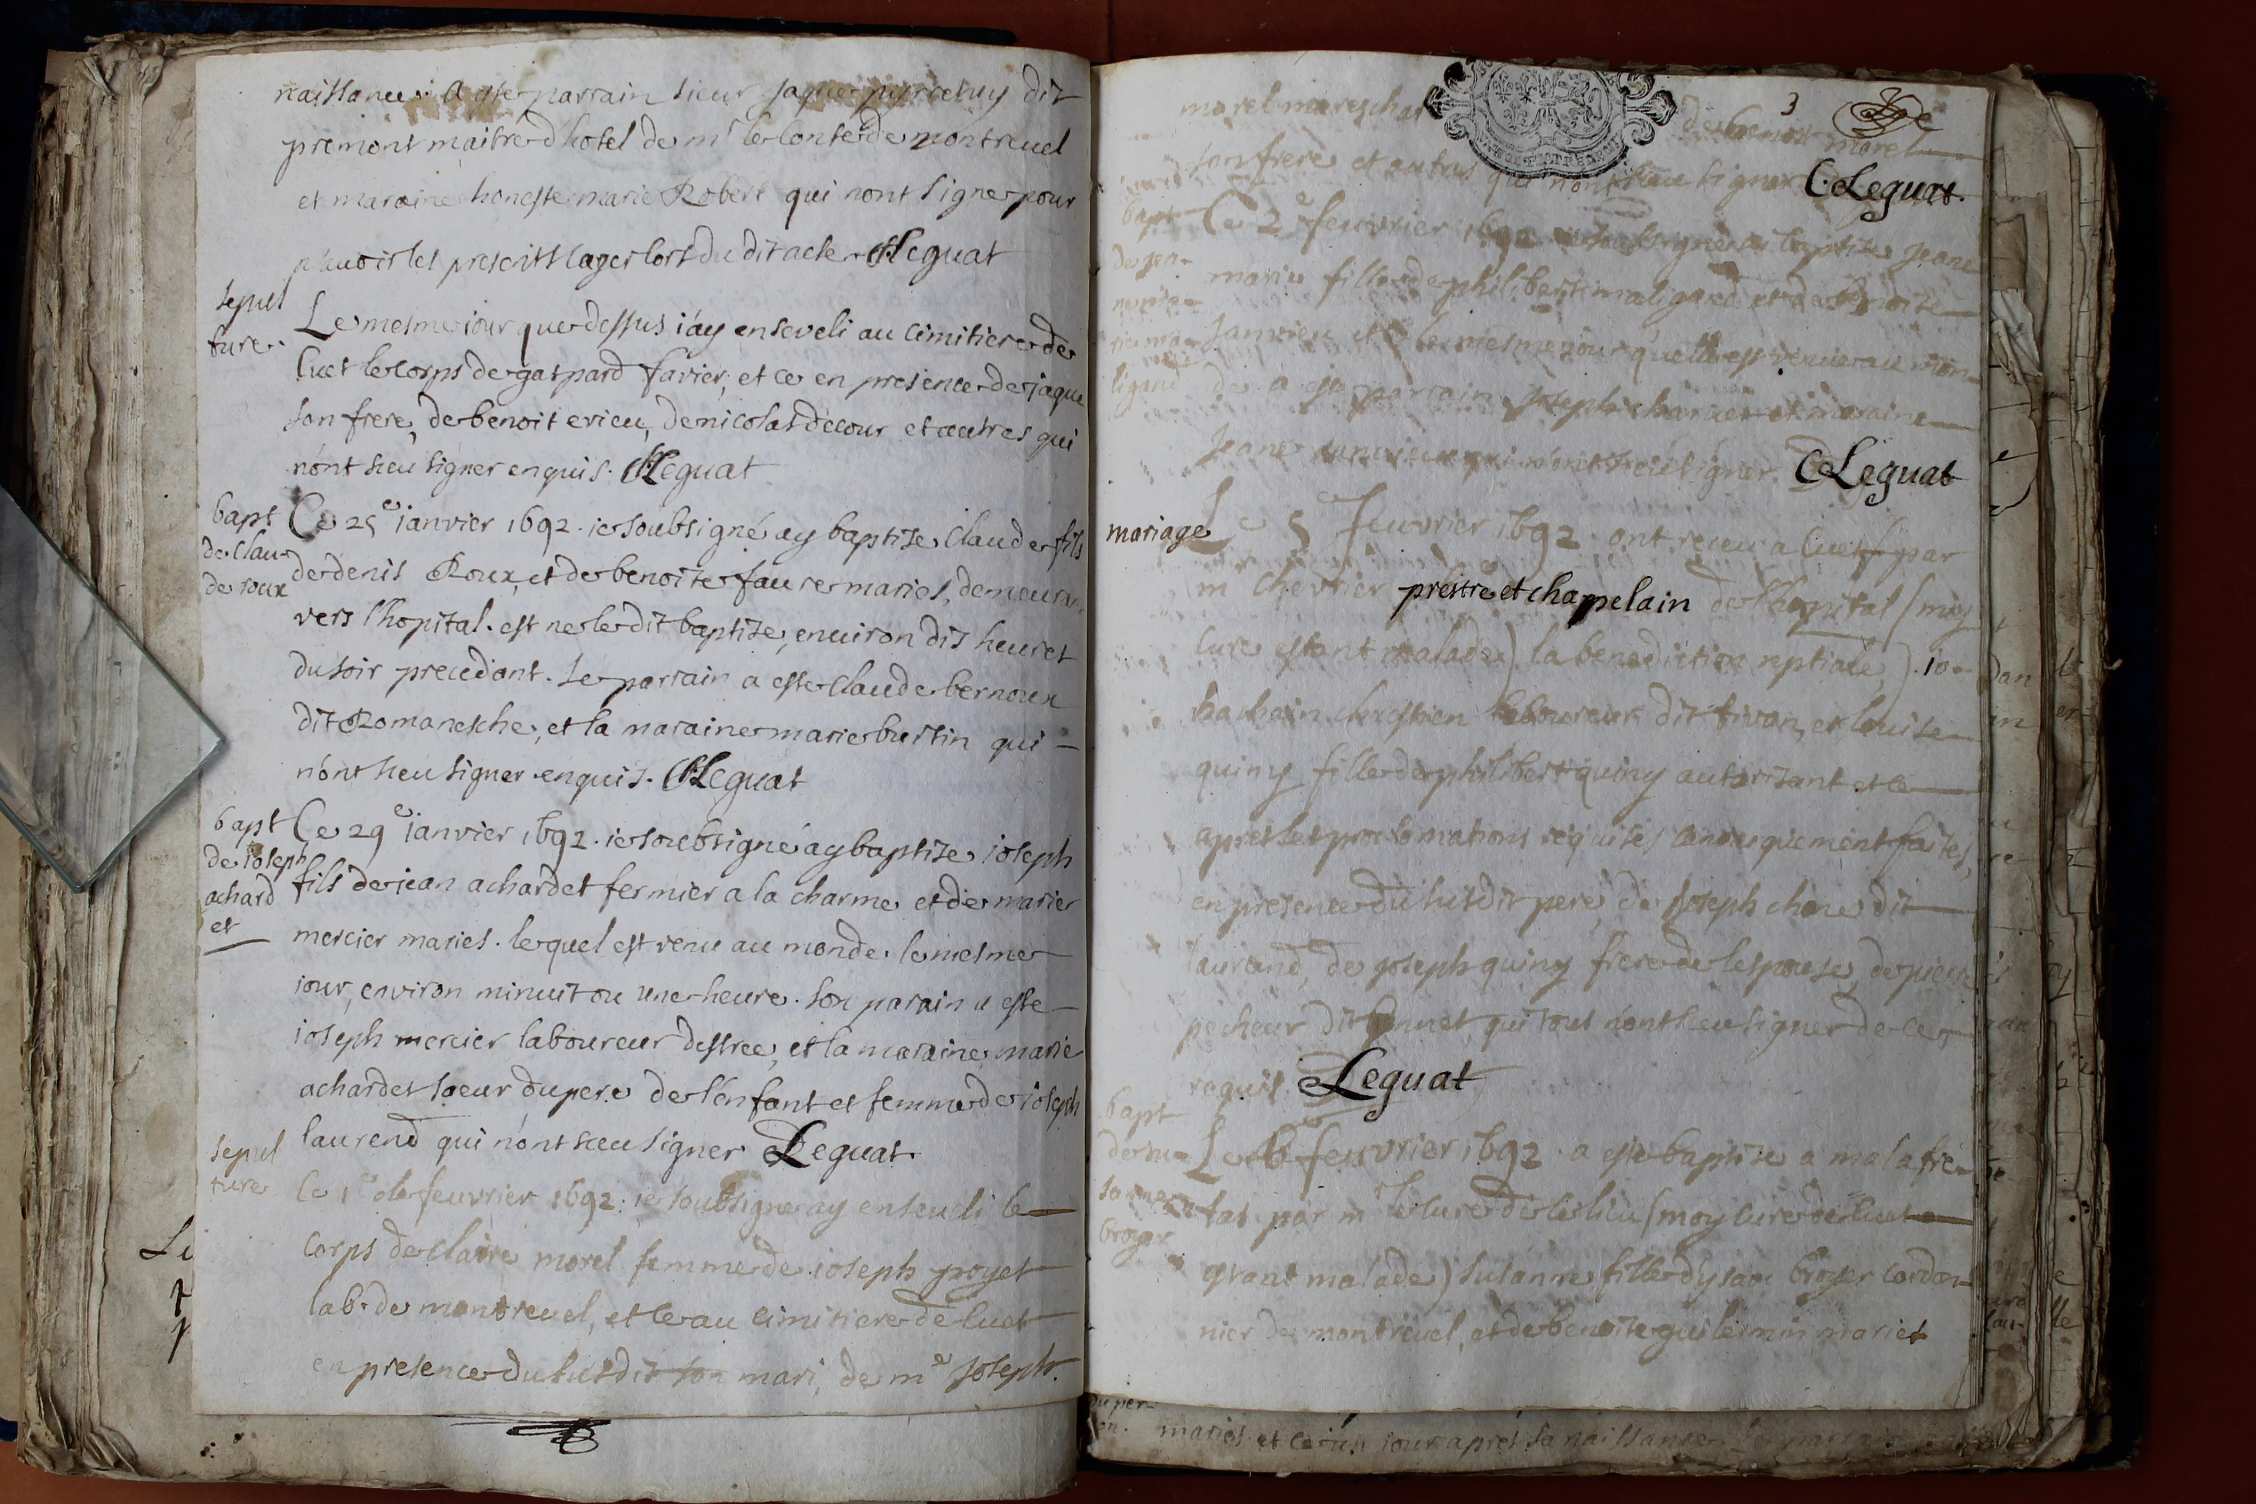 naissance. a este parrain sieur jaque dit
premont maitre d'hotel de mr le conte de montrevel
et maraine honeste marie Robert qui n'ont signe pour
du dit acte CLeguat
sepul
ture
Le mesme iour que dessus i'ay enseveli au cimitiere de
Cuet le corps de gaspard favier, et ce en presence de jaque
son frere, de benoit evieu, de nicolas decour et autres qui
n'ont sceu signer enquis. CLeguat
bapt
de clau
de roux
Ce 25e janvier 1692. ie soubsigné ay baptise Claude fils
de denis Roux, et de benoite faure maries, demeurant
vers l'hopital. est ne le dit baptise, environ dis heures
du soir precedant. Le parrain a este claude bernoux
dit Romanesche, et la maraine marie burtin qui
n'ont sceu signer enquis. CLeguat
bapt
de ioseph
achard
et
Ce 29e janvier 1692. ie soubsigné ay baptise ioseph
fils de jean achardet fermier a la charme et de marie
mercier maries. lequel est venu au monde le mesme
iour, environ minuit ou une heure. son parain a este
ioseph mercier laboureur destree, et la maraine marie
achardet soeur du pere de l'enfant et femme de ioseph
laurend qui n'ont sceu signer CLeguat.
sepul
ture
Ce 1e de feuvrier 1692. ie soubsigne ay enseveli le
corps de claire morel femme de ioseph poyet
lab. de montrevel, et ce au cimitiere de Cuet
en presence du susdit son mari, de me Joseph
3
morel mareschal morel
son frere et autres qui n'ont sceu signer CLeguat.
bapt
de jea
ne
marie ma
ligand
Ce 2e feuvrier 1692 ie soubsigné ay baptise Jeane
marie fille de philibert maligand et de benoite
Janvieu et ce le mesme jour qu'elle est venue au mon
de. a este parrain Joseph et maraine
Jeane qui n'ont sceu signer. CLeguat
mariage
Le 5e feuvrier 1692. ont receu a Cuet (par
mr chevrier prestre et chapelain de l'hopital (moy
Cure estant malade) la benediction nuptiale). io
laboureur dit tivan, et louise
quiny fille de philibert quiny autorisant et ce
apres les proclamations requises canoniquement faites,
en presence du susdit pere, de Joseph chene dit
laurend, de joseph quiny frere de l'espouse, de pierre
pecheur dit bonnet, qui tous n'ont sceu signer de ce
requis. CLeguat
bapt
de su
sanne
broyer
Le 6 feuvrier 1692. a este baptise a malafre
tas par mr le cure de ce lieu (moy cure de Cuet
malade) susanne fille d'ysaac broyer cordon
nier de montrevel, et de benoite guilermin maries
maries. et ce un iour apres sa naissance.